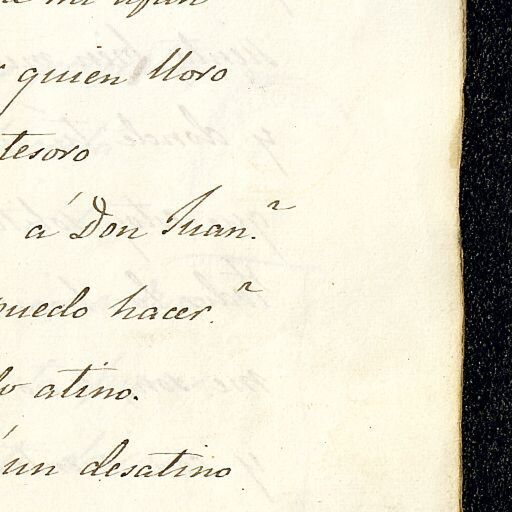 quien lloro
tesoro
á Don Juan.
puedo hacer.
atino.
un desatino